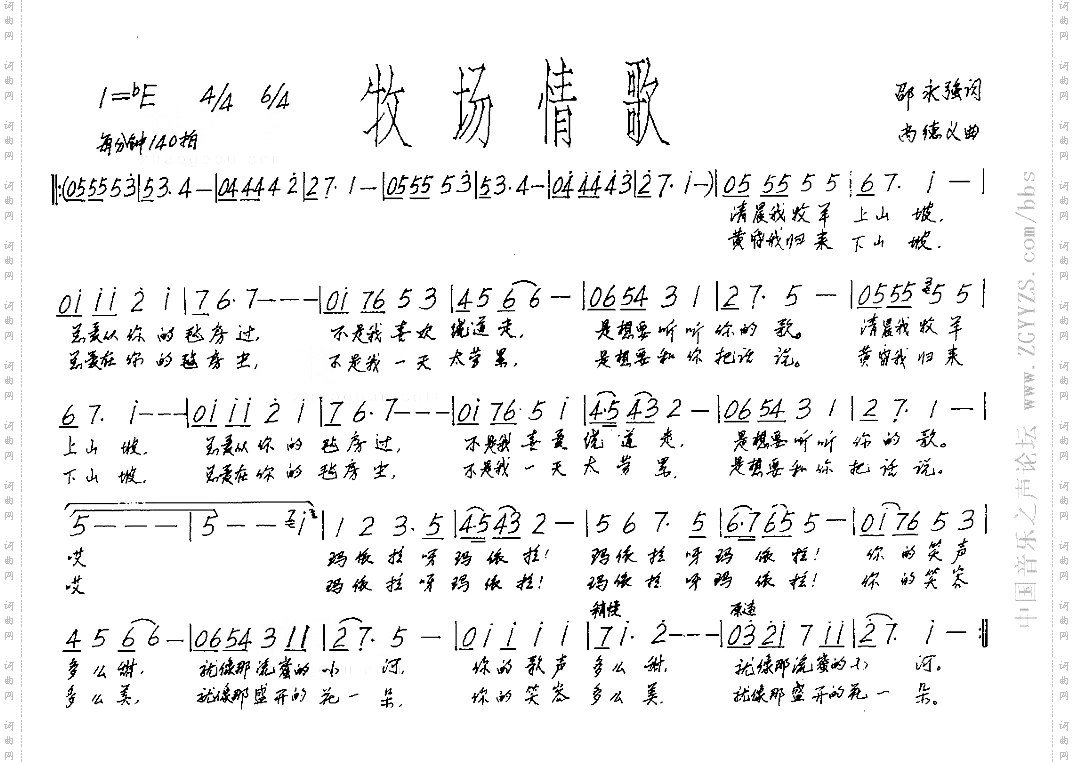 牧场情歌
1=bE 4/4 6/4
邵永强词
每分钟140拍
尚德义曲
‖:(05555 3|53. 4 —|04444 2|27. 1 —|05555 3|53. 4 —|04444 3|27. i —)|05 55 5 5|67. i —|
清晨我牧羊 上山 坡,
黄昏我归来 下山 坡.
0i i i 2 i|76.7———|0i 76 5 3|45 66 —|0654 3 1|27. 5 —|0555 5 5|
总要从你的毡房过, 不是我喜欢绕道走, 是想要听听你的歌。 清晨我牧羊
总要在你的毡房坐, 不是我一天太劳累, 是想要和你把话说。 黄昏我归来
67. i———|0i i i 2 i|76.7———|0i 76.5 i|4.5 43 2—|0654 3 1|27. 1—|
上山 坡. 总要从你的毡房过, 不是我喜爱绕道走, 是想要听听你的歌。
下山 坡. 总要在你的毡房坐, 不是我一天太劳累, 是想要和你把话说。
5———|5——i|1 2 3.5|45 43 2—|5 6 7.5|6.765 5—|0i 76 5 3|
哎 玛依拉呀玛依拉! 玛依拉呀玛依拉! 你的笑声
哎 玛依拉呀玛依拉! 玛依拉呀玛依拉! 你的笑容
稍慢 原速
45 66—|0654 3 11|27. 5—|0i i i i|7i. 2———|03 2i 7 ii|27. i—:‖
多么甜, 就像那流蜜的小河, 你的歌声多么甜, 就像那流蜜的小河。
多么美, 就像那盛开的花一朵, 你的笑容多么美, 就像那盛开的花一朵。
中国音乐之声论坛 www.ZGYYZS.com/bbs
词曲网